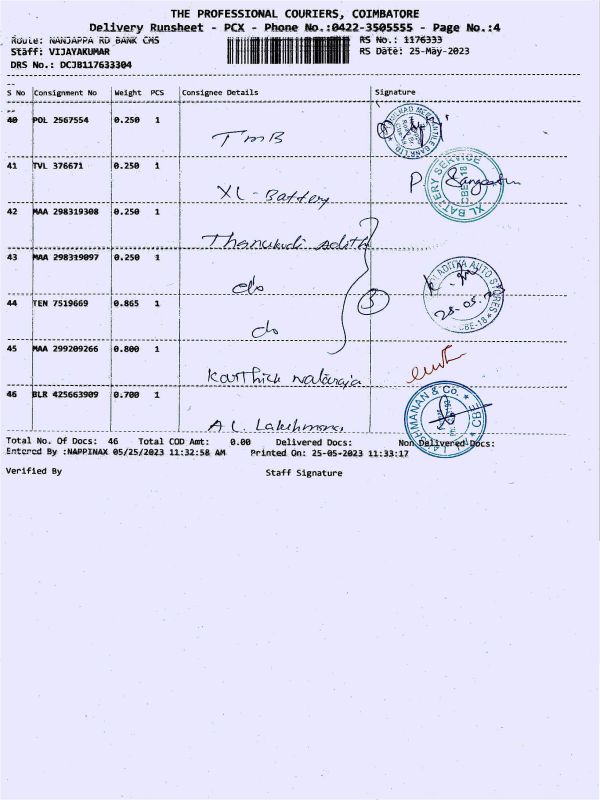 THE PROFESSIONAL COURIERS, COIMBATORE
Delivery Runsheet - PCX - Phone No.:0422-3505555 - Page No.:4
Route: NANJAPPA RD BANK CMS RS No.: 1176333
Staff: VIJAYAKUMAR RS Date: 25-May-2023
DRS No.: DCJB117633304
S No Consignment No Weight PCS Consignee Details Signature
40 POL 2567554 0.250 1
TMB
41 TVL 376671 0.250 1
XL-Battery
XL BATTERY SERVICE CBE-18
P.
42 MAA 298319308 0.250 1
43 MAA 298319097 0.250 1
do
3
ADITYA AUTO STORES CBE-18
44 TEN 7519669 0.865 1
do
45 MAA 299209266 0.800 1
Karthick Nataraja
46 BLR 425663909 0.700 1
LAKSHMANAN & Co. CBE
Total No. Of Docs: 46 Total COD Amt: 0.00 Delivered Docs: Non Delivered Docs:
Entered By :NAPPINAX 05/25/2023 11:32:58 AM Printed On: 25-05-2023 11:33:17
Verified By Staff Signature